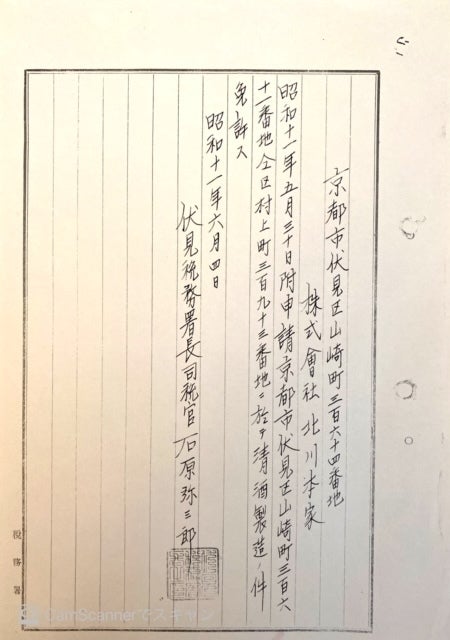 京都市伏見区山崎町三百六十四番地
株式會社北川本家
昭和十一年五月三十日附申請京都市伏見区山崎町三百六
十一番地仝区村上町三百九十三番地ニ於テ清酒製造ノ件
免許ス
昭和十一年六月四日
伏見税務署長司税官石原弥三郎
税務署
CamScannerでスキャン